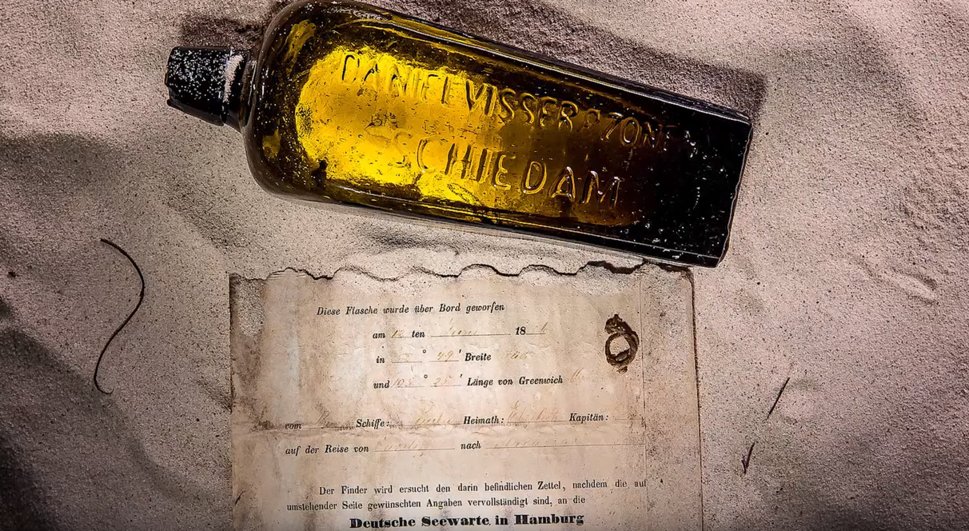 DANIEL VISSER & ZONEN
SCHIEDAM
Diese Flasche wurde über Bord geworfen
am 12 ten 18
in ° 49' Breite
und 105° 25' Länge von Greenwich
vom Schiffe: Heimath: Kapitän:
auf der Reise von nach
Der Finder wird ersucht den darin befindlichen Zettel, nachdem die auf
umstehender Seite gewünschten Angaben vervollständigt sind, an die
Deutsche Seewarte in Hamburg